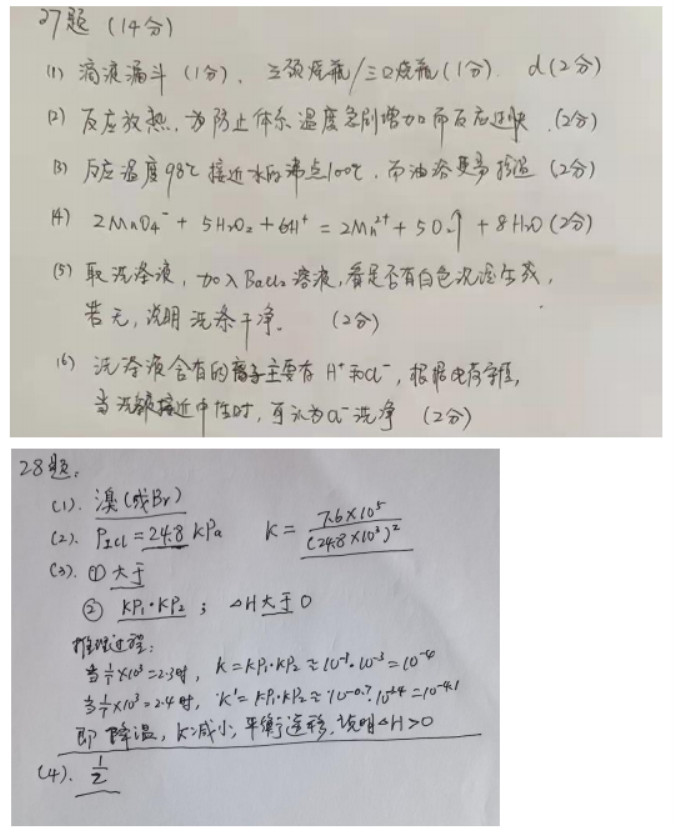 27题 (14分)
(1) 滴液漏斗 (1分)、三颈烧瓶/三口烧瓶(1分) d(2分)
(2) 反应放热,为防止体系温度急剧增加而反应过快 (2分)
(3) 反应温度98℃接近水的沸点100℃,而油浴更易控温 (2分)
(4) 2MnO₄⁻ + 5H₂O₂ + 6H⁺ = 2Mn²⁺ + 5O₂↑ + 8H₂O (2分)
(5) 取洗涤液,加入BaCl₂溶液,看是否有白色沉淀生成,
若无,说明洗涤干净。 (2分)
(6) 洗涤液含有的离子主要有 H⁺和Cl⁻,根据电荷守恒,
当洗涤液接近中性时,可认为Cl⁻洗净 (2分)
28题:
(1). 溴(或Br)
(2). P_ICl = 24.8 kPa K = 7.6×10⁵/(24.8×10³)²
(3). ① 大于
② KP₁·KP₂ ; △H大于0
推理过程:
当1/T×10³=2.3时, K=KP₁·KP₂≈10⁻¹·10⁻³=10⁻⁴
当1/T×10³=2.4时, K'=KP₁·KP₂≈10^-0.7·10^-3.4=10^-4.1
即降温,K减小,平衡逆移,说明△H>0
(4). 1/2